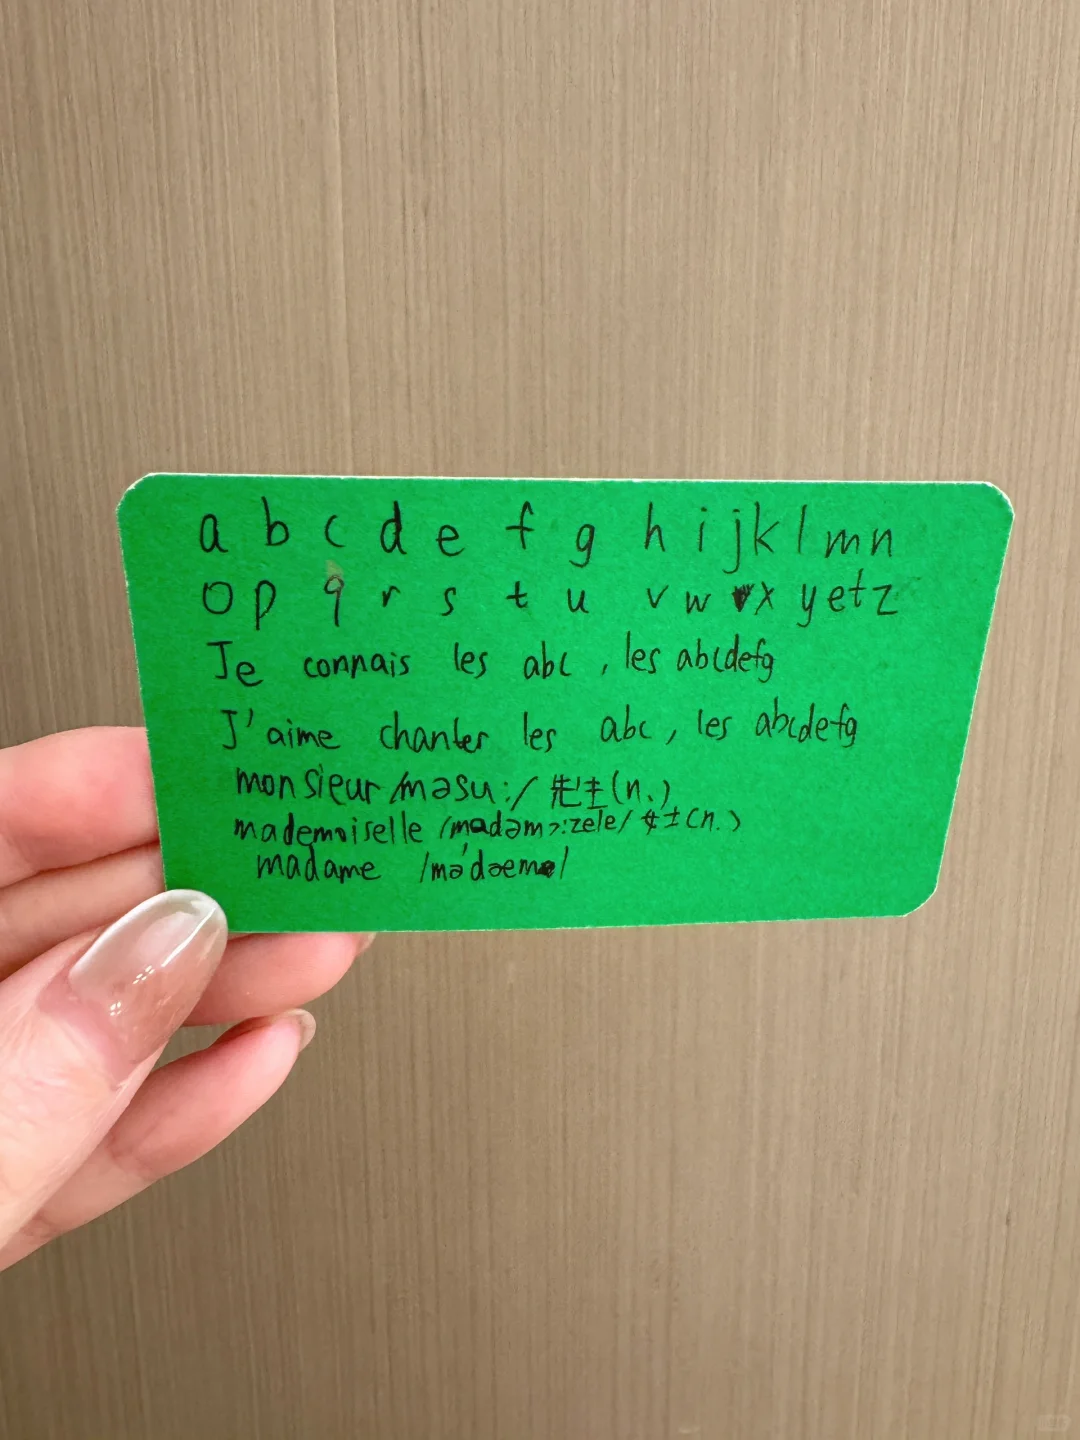 a b c d e f g h i j k l m n
o p q r s t u v w x y et z
Je connais les abc, les abcdefg
J'aime chanter les abc, les abcdefg
monsieur /məsu:/ 先生(n.)
mademoiselle /madəmɔ:zele/ 女士(n.)
madame /mə'dəem/